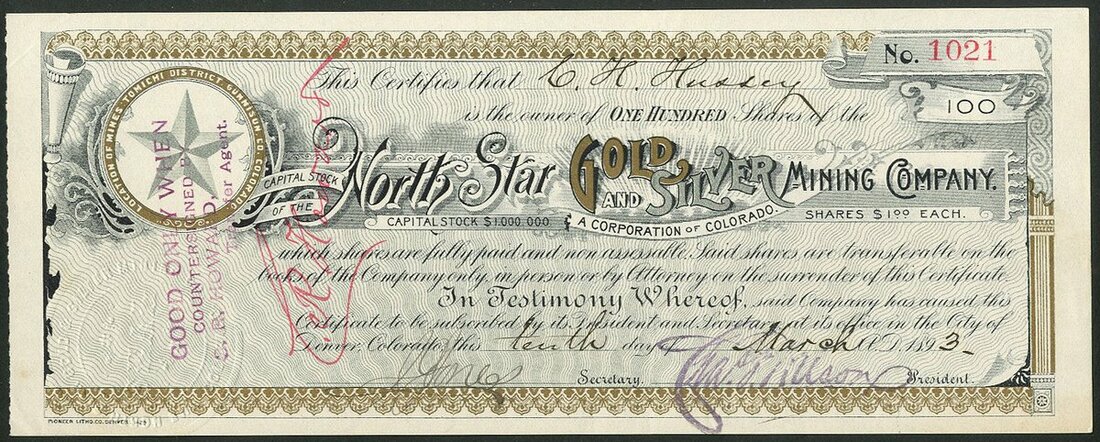 No. 1021
100
This Certifies that C. H. Hussey
is the owner of ONE HUNDRED Shares of the
LOCATION OF MINES TOMICHI DISTRICT GUNNISON CO. COLORADO
CAPITAL STOCK
OF THE
North Star GOLD AND SILVER MINING COMPANY.
CAPITAL STOCK $1.000.000. & A CORPORATION OF COLORADO. SHARES $1.00 EACH.
which shares are fully paid and non assessable. Said shares are transferable on the
books of the Company only in person or by Attorney on the surrender of this Certificate
In Testimony Whereof, said Company has caused this
Certificate to be subscribed by its President and Secretary at its office in the City of
Denver, Colorado, this tenth day of March A.D. 1893.
Secretary. President.
GOOD ONLY WHEN
COUNTERSIGNED BY
Agent.
PIONEER LITHO. CO. DENVER